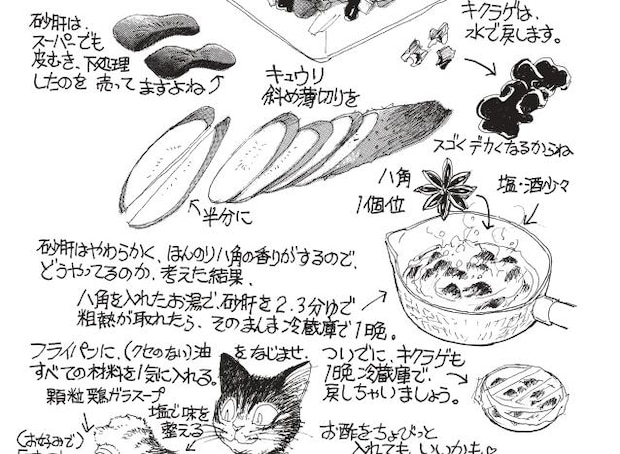 砂肝は、
スーパーでも
皮むき、下処理
したのを 売ってますよね
キクラゲは、
水で戻します。
スゴくデカくなるからね
キュウリ
斜め薄切りを
半分に
八角
1個位
塩・酒少々
砂肝はやわらかく、ほんのり八角の香りがするので、
どうやってるのか、考えた結果、
八角を入れたお湯で、砂肝を2.3分ゆで
粗熱が取れたら、そのまんま冷蔵庫で1晩。
フライパンに、(クセのない)油をなじませ、
すべての材料を1気に入れる。
顆粒鶏ガラスープ
塩で味を
整える
(お好みで)
ついでに、キクラゲも
1晩冷蔵庫で、
戻しちゃいましょう。
お酢をちょびっと
入れても、いいかも♡